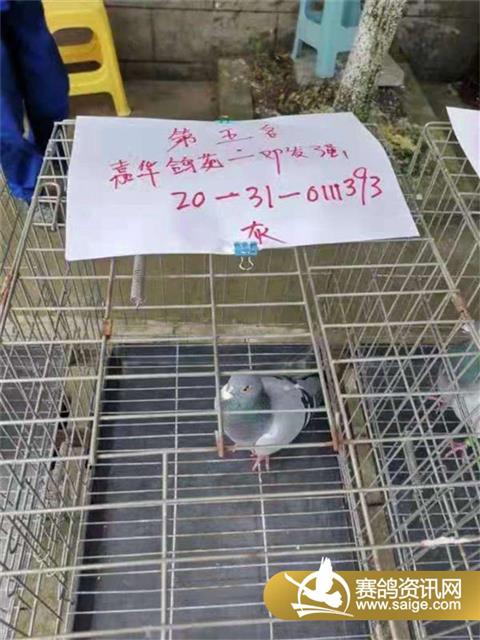 第五名
嘉华鸽苑—邓发强
20-31-0111393
灰
赛鸽资讯网
www.saige.com